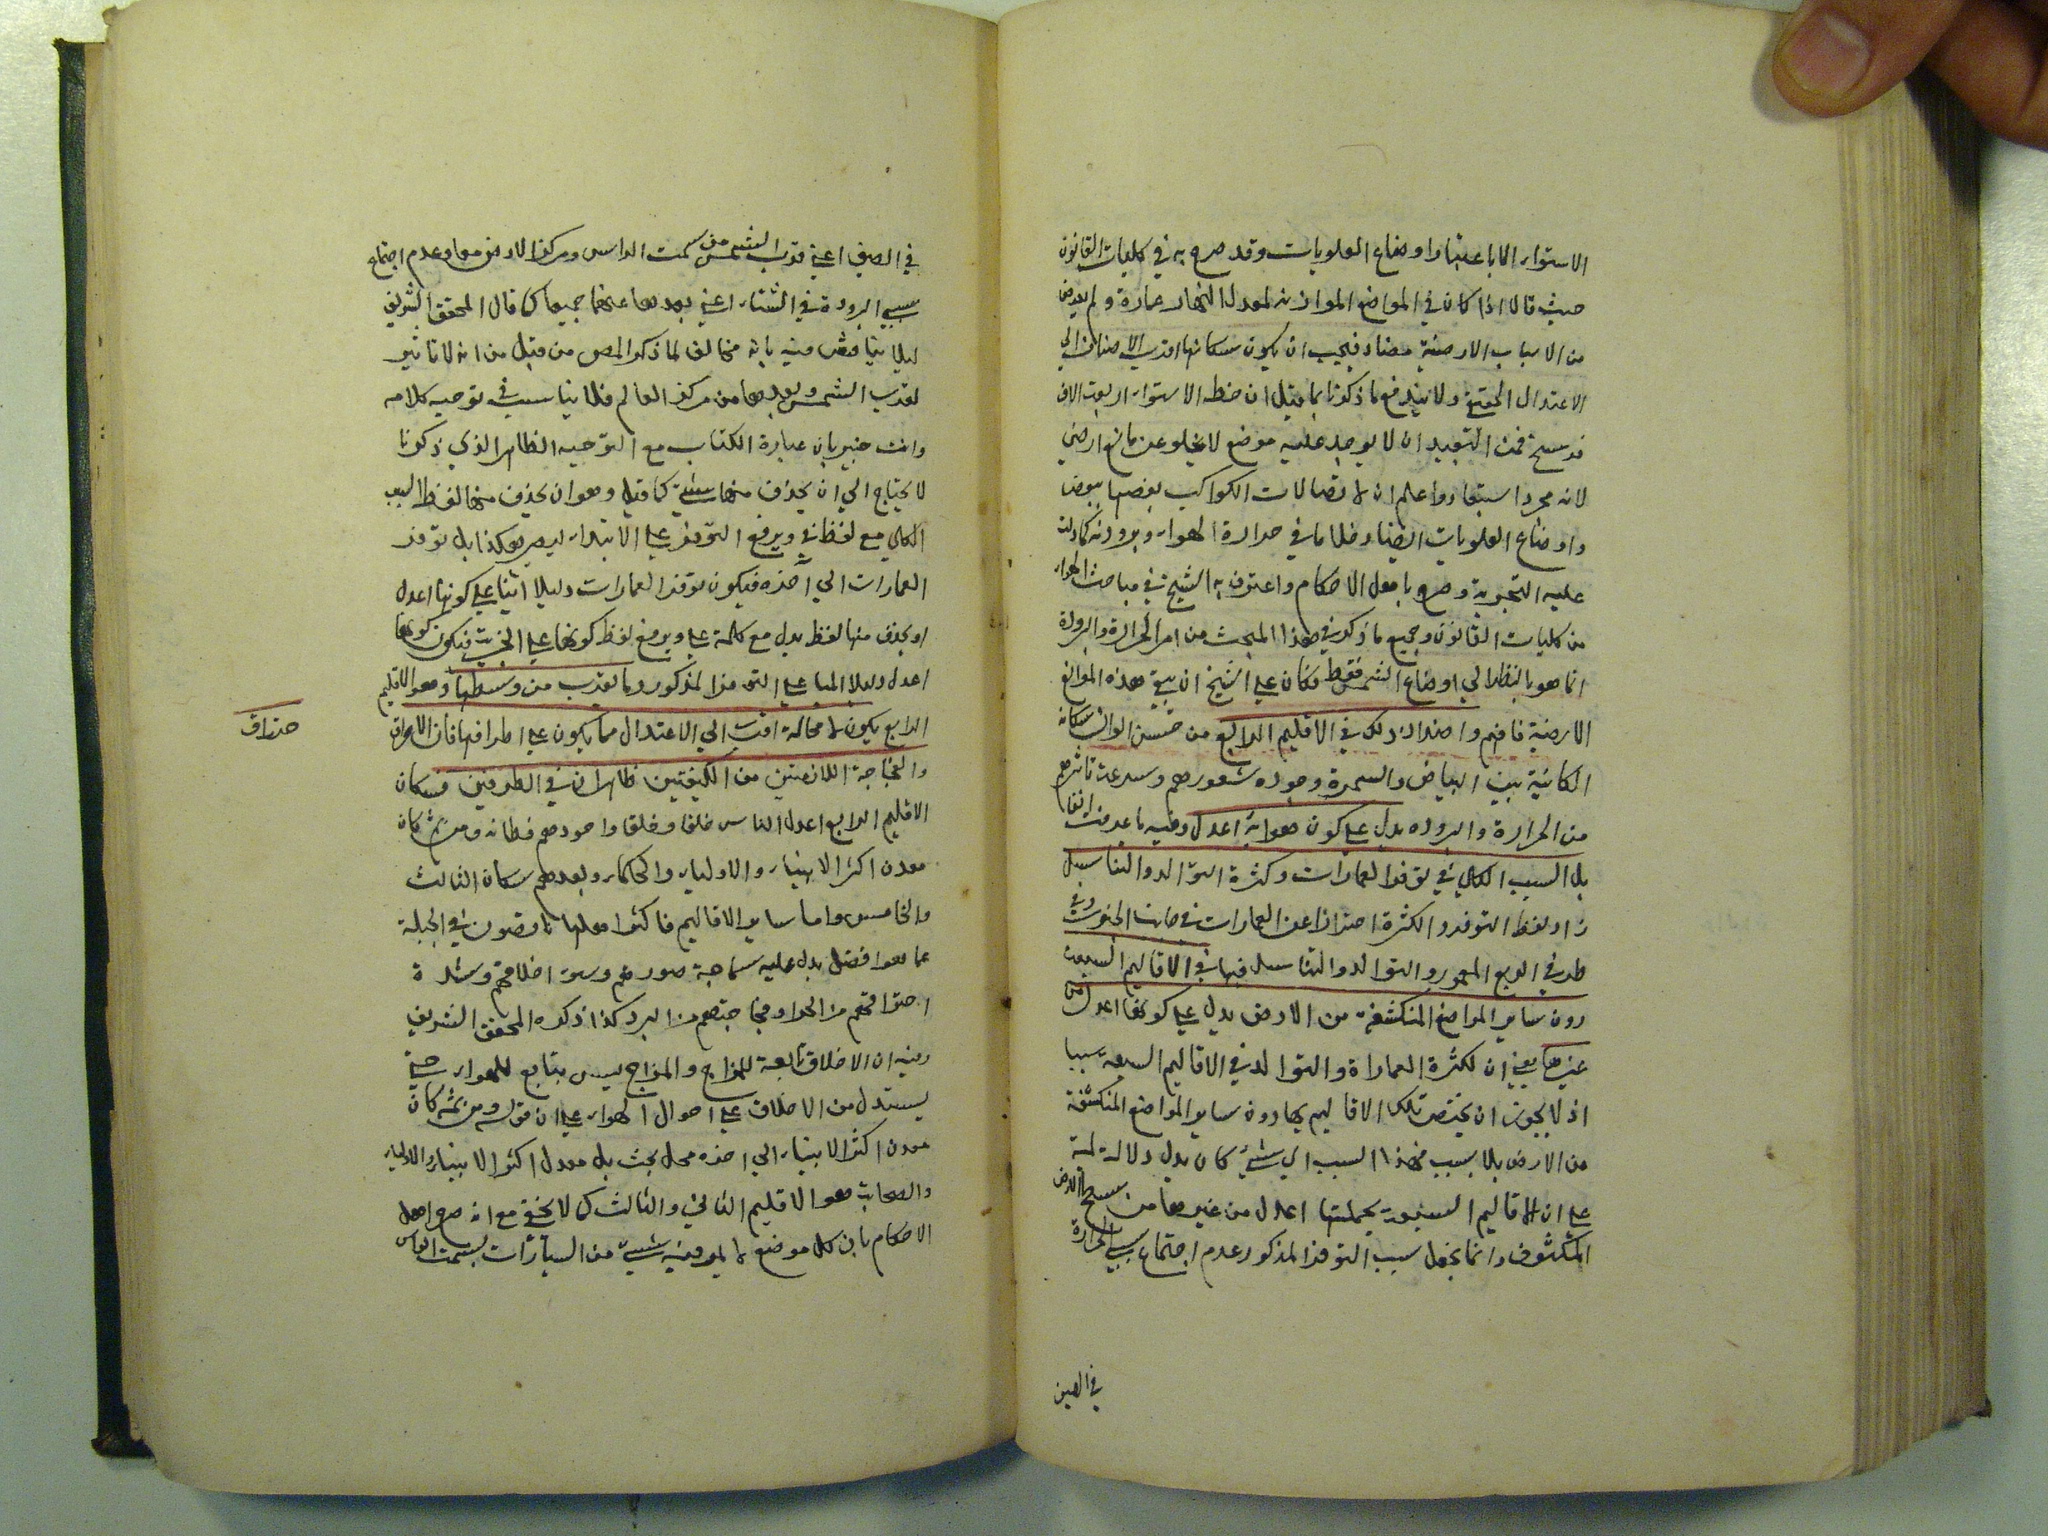 الاستواء الا باعتبار اوضاع العلويات وقد صرح به في كليات القانون
حيث قال اذا كان في المواضع الموازية لمعدل النهار عمارة ولم يعرض
من الاسباب الارضية مضاد فيجب ان يكون سكانها اقرب الاصناف الي
الاعتدال الحقيقي ولا يندفع ما ذكرنا بما قيل ان خط الاستواء اربعة الاف
فرسخ فمن البعيد ان لا يوجد عليه موضع لا يخلو عن مانع ارضي
لانه مجرد استبعاد واعلم ان لاتصالات الكواكب بعضها ببعض
واوضاع العلويات ايضا دخلا ما في حرارة الهواء وبرودته كما دلت
عليه التجربة وصرح به اهل الاحكام واعترف به الشيخ في مباحث الهواء
من كليات القانون وجميع ما ذكر في هذا المبحث من امر الحرارة والبرودة
انما هو بالنظر الي اوضاع الشمس فقط فكان علي الشيخ ان يبقي هذه الموانع
الارضية فافهم واضداد ذلك في الاقليم الرابع من حسن الوان سكانه
الكائنة بين البياض والسمرة وجوده شعورهم وسرعت تاثرهم
من الحرارة والبروده يدل علي كون هوائه اعدل وفيه ما عرفت انفا
بل السبب الكلي في توفر العمارات وكثرة التوالد والتناسل
زاد لفظ التوفر والكثرة احترازا عن العمارات في جانب الجنوب وفي
طرفي الربع المعمور والتوالد والتناسل فيها في الاقاليم السبعة
دون ساير المواضع المنكشفة من الارض يدل علي كونها اعدل من
غيرها يعني ان لكثرة العماراة والتوالد في الاقاليم السبعة سببا
اذ لا يجوز ان يختص تلك الاقاليم بها دون ساير المواضع المنكشفة
من الارض بلا سبب فهذا السبب اي شئ كان يدل دلالة لمية
علي ان الاقاليم السبعة بجملتها اعدل من غيرها من سطح الارض
المكشوف وانما يجعل سبب التوفر المذكور عدم اجتماع سببي الحرارة
في الصيف
في الصيف اعني قرب الشمس من سمت الراس ومركز الارض معا وعدم اجتماع
سببي البرودة في الشتاء اعني بعدها عنهما جميعا كما قال المحقق الشريف
ليلا يناقش فيه بانه مخالف لما ذكر المص من قبل من انه لا تاثير
لقرب الشمس وبعدها من مركز العالم فلا يناسب في توجيه كلامه
وانت خبير بان عبارة الكتاب مع التوجيه الظاهر الذي ذكرنا
لا يحتاج الي ان يحذف منها شئ كما قيل وهو ان يحذف منها لفظ السبب
الكلي مع لفظ في ويرفع التوفر علي الابتداء ليصير هكذا بل توفر
العمارات الي آخره فيكون توفر العمارات دليلا انيا علي كونها اعدل
او يحذف منها لفظ يدل مع كلمة علي ويرفع لفظ كونها علي الخبرية فيكون كونها
اعدل دليلا لميا علي التوفر المذكور وما يقرب من وسطها وهو الاقليم
الرابع يكون لا محالة اقرب الي الاعتدال مما يكون علي اطرافها فان الاحتراق
احتراق
والفجاجة اللازمتين من الكيفيتين ظاهران في الطرفين فسكان
الاقليم الرابع اعدل الناس خلقا وخلقا واجودهم فطانه ومن ثم كان
معدن اكثر الانبياء والاولياء والحكماء وبعدهم سكان الثالث
والخامس واما ساير الاقاليم فاكثر اهلها ناقصون في الجبلة
عما هو افضل يدل عليه سماجة صورهم وسوء اخلاقهم وشدة
احتراقهم من الحر او فجاجتهم من البرد كذا ذكره المحقق الشريف
وفيه ان الاخلاق تابعة للمزاج والمزاج ليس بتابع للهواء حتي
يستدل من الاخلاق علي احوال الهواء علي ان قوله ومن ثمه كان
معدن اكثر الانبياء الي اخره محل بحث بل معدن اكثر الانبياء والاولياء
والصحابة هو الاقليم الثاني والثالث كما لا يخفي مع انه صرح اهل
الاحكام بان كل موضع لا يمر فيه شئ من السيارات بسمت الراس